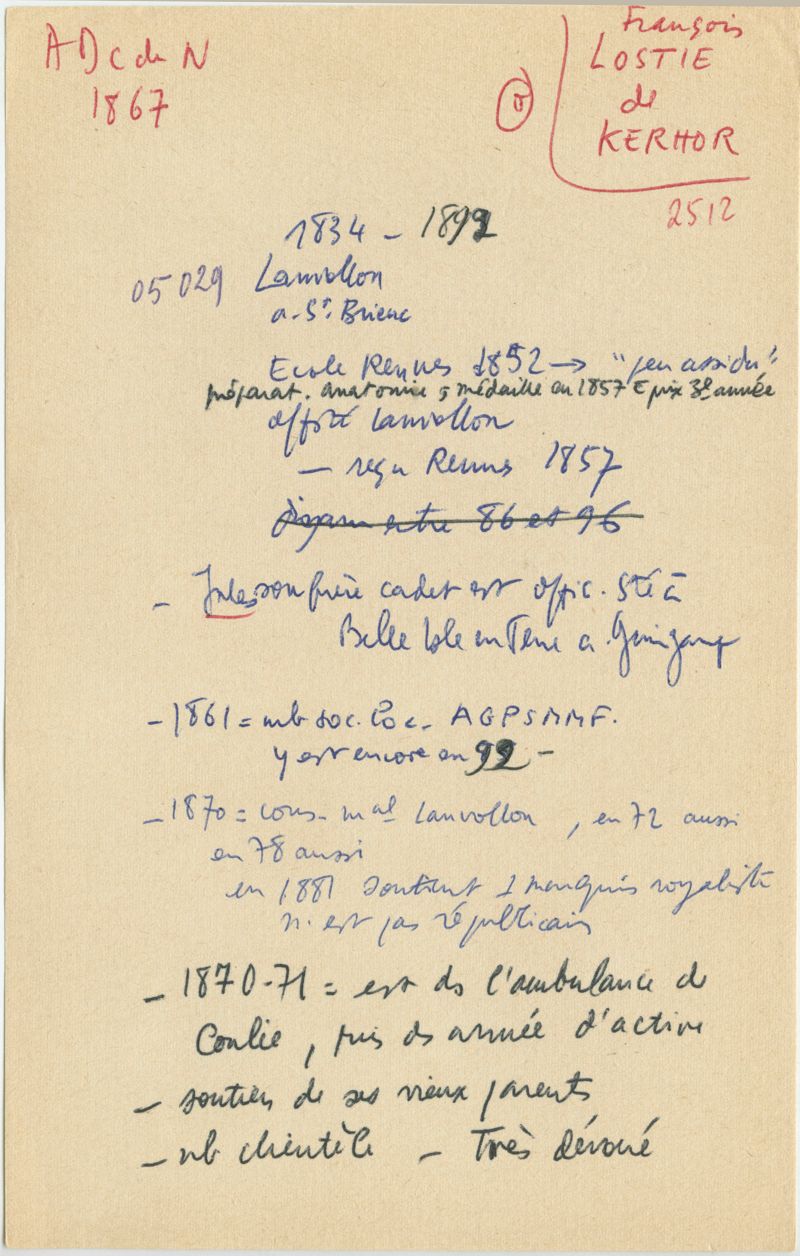 A D C du N
1867
François
LOSTIE
de
KERHOR
2512
1834 - 1892
05 029 Lanvollon
a. St. Brieuc
Ecole Rennes 1852 → "peu assidu"
préparat. anatomie, médaille en 1857 prix 3e année
Lanvollon
- reçu Rennes 1857
entre 86 et 96
- Jules son frère cadet est offic. Sté à
Belle Isle en Terre a. Guingamp
- 1861 = mb soc. loc. AGPSMMF.
y est encore en 92 -
- 1870 = cons. mal Lanvollon, en 72 aussi
en 78 aussi
en 1881 soutient 1 marquis royaliste
n'est pas républicain
- 1870-71 = est ds l'ambulance de
Conlie, puis ds armée d'active
- soutien de ses vieux parents
- nb clientèle - Très dévoué